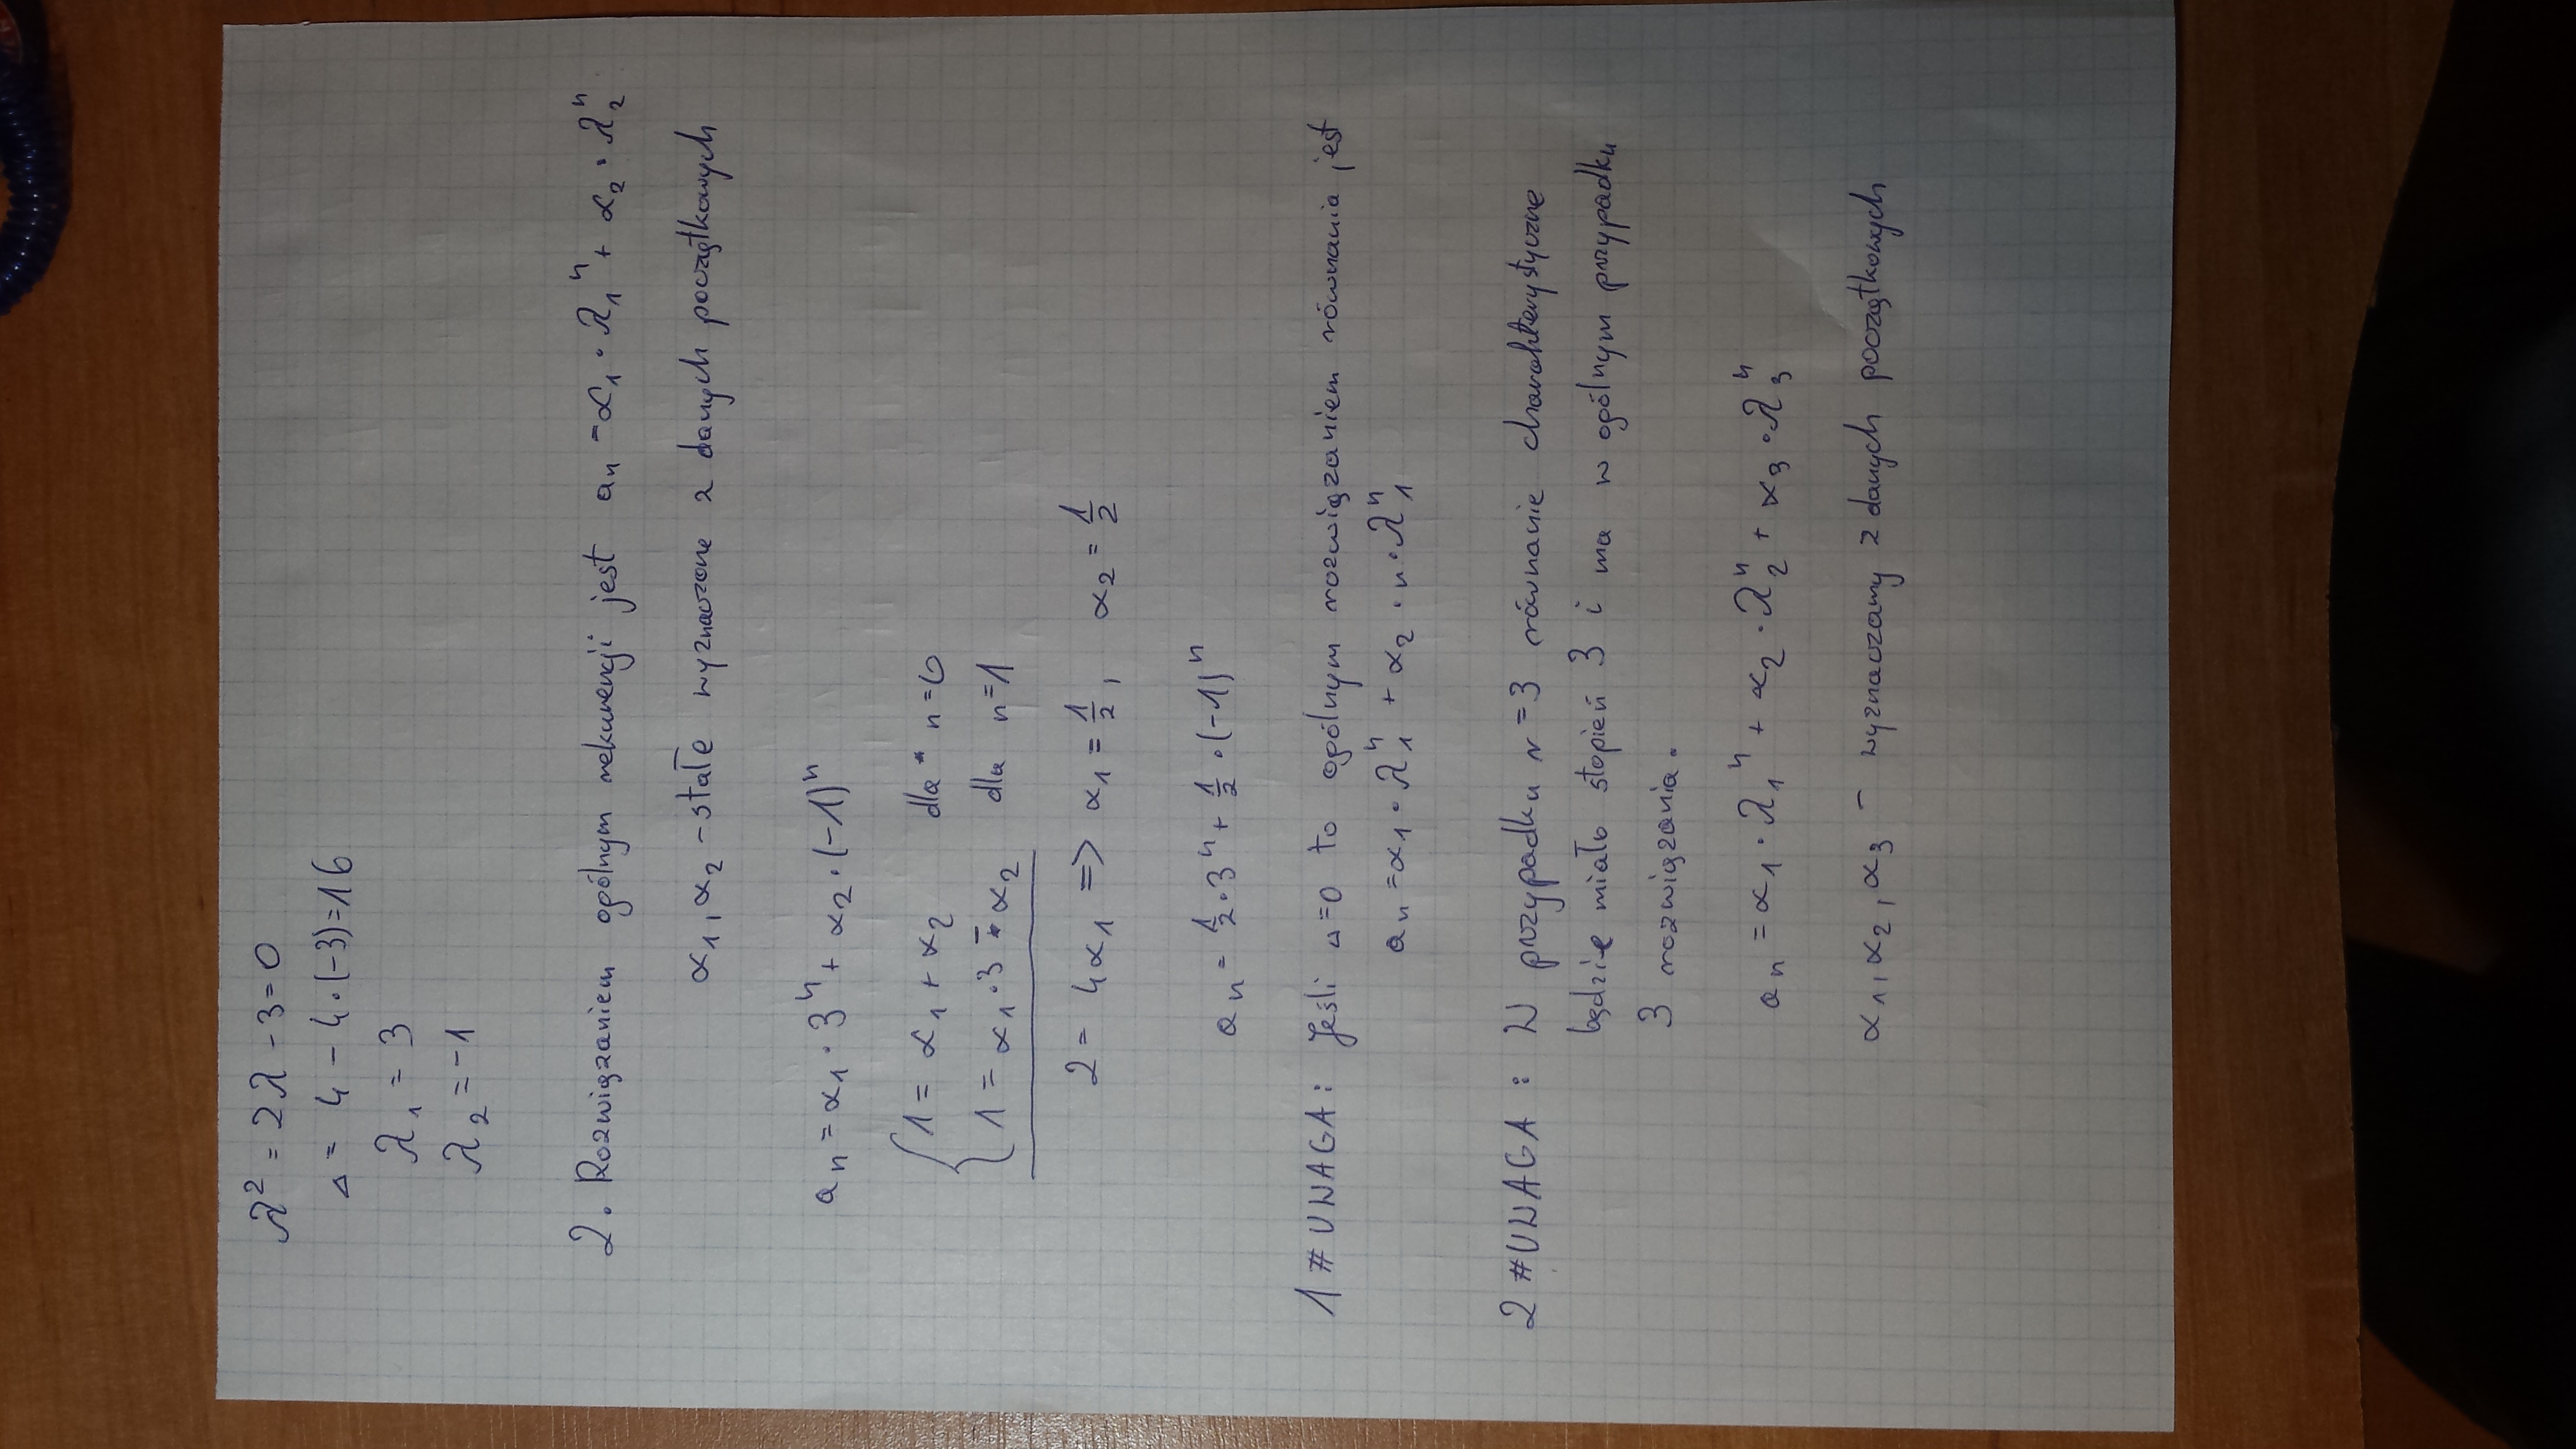 λ² = 2λ - 3 = 0
Δ = 4 - 4·(-3) = 16
λ₁ = 3
λ₂ = -1
2. Rozwiązaniem ogólnym rekurencji jest aₙ = α₁·λ₁ⁿ + α₂·λ₂ⁿ
α₁, α₂ - stałe wyznaczone z danych początkowych
aₙ = α₁·3ⁿ + α₂·(-1)ⁿ
1 = α₁ + α₂ dla n = 0
1 = α₁·3 - α₂ dla n = 1
2 = 4α₁ => α₁ = 1/2, α₂ = 1/2
aₙ = 1/2·3ⁿ + 1/2·(-1)ⁿ
1 # UWAGA: Jeśli Δ = 0 to ogólnym rozwiązaniem równania jest
aₙ = α₁·λ₁ⁿ + α₂·n·λ₁ⁿ
2 # UWAGA: W przypadku r = 3 równanie charakterystyczne
będzie miało stopień 3 i ma w ogólnym przypadku
3 rozwiązania.
aₙ = α₁·λ₁ⁿ + α₂·λ₂ⁿ + α₃·λ₃ⁿ
α₁, α₂, α₃ - wyznaczamy z danych początkowych